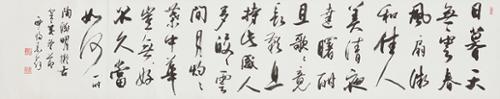 日暮天
無雲春
風扇微
和佳人
美清夜
達曙酣
且歌々竟
長歎息
持此感人
多皎々雲
間月灼々
葉中華
豈無好
不久當
如何 一时
陶淵明擬古